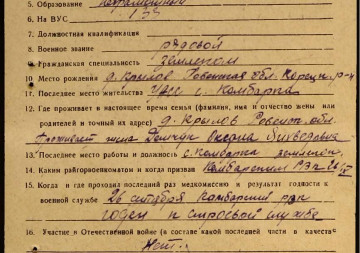 5. Образование неграмотный
6. На ВУС 133
7. Должностная квалификация
8. Военное звание рядовой
9. Гражданская специальность землекоп
10 Место рождения д. Крылов Ровенская обл. Корецкий р-н
11. Последнее место жительства УАСС с. Камбарка
12. Где проживает в настоящее время семья (фамилия, имя и отчество жены или
родителей и точный их адрес) д. Крылов Ровенск обл.
проживает жена Оксана
13. Последнее место работы и должность с. Камбарка землекоп
14. Каким райгорвоенкоматом и когда призван Камбарский РВК
15. Когда и где проходил последний раз медкомиссию и результат годности к
военной службе 26 октября Камбарский рвк
годен к строевой службе
16. Участие в Отечественной войне (в составе какой последней части в качестве
Нет.